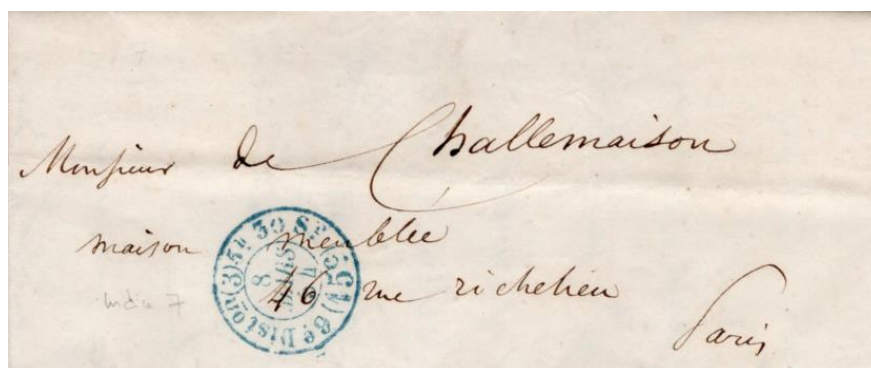 Monsieur de Challemaison
maison meublée
46 rue richelieu
Paris
6e Diston (3) 5h 30 S
8
MARS